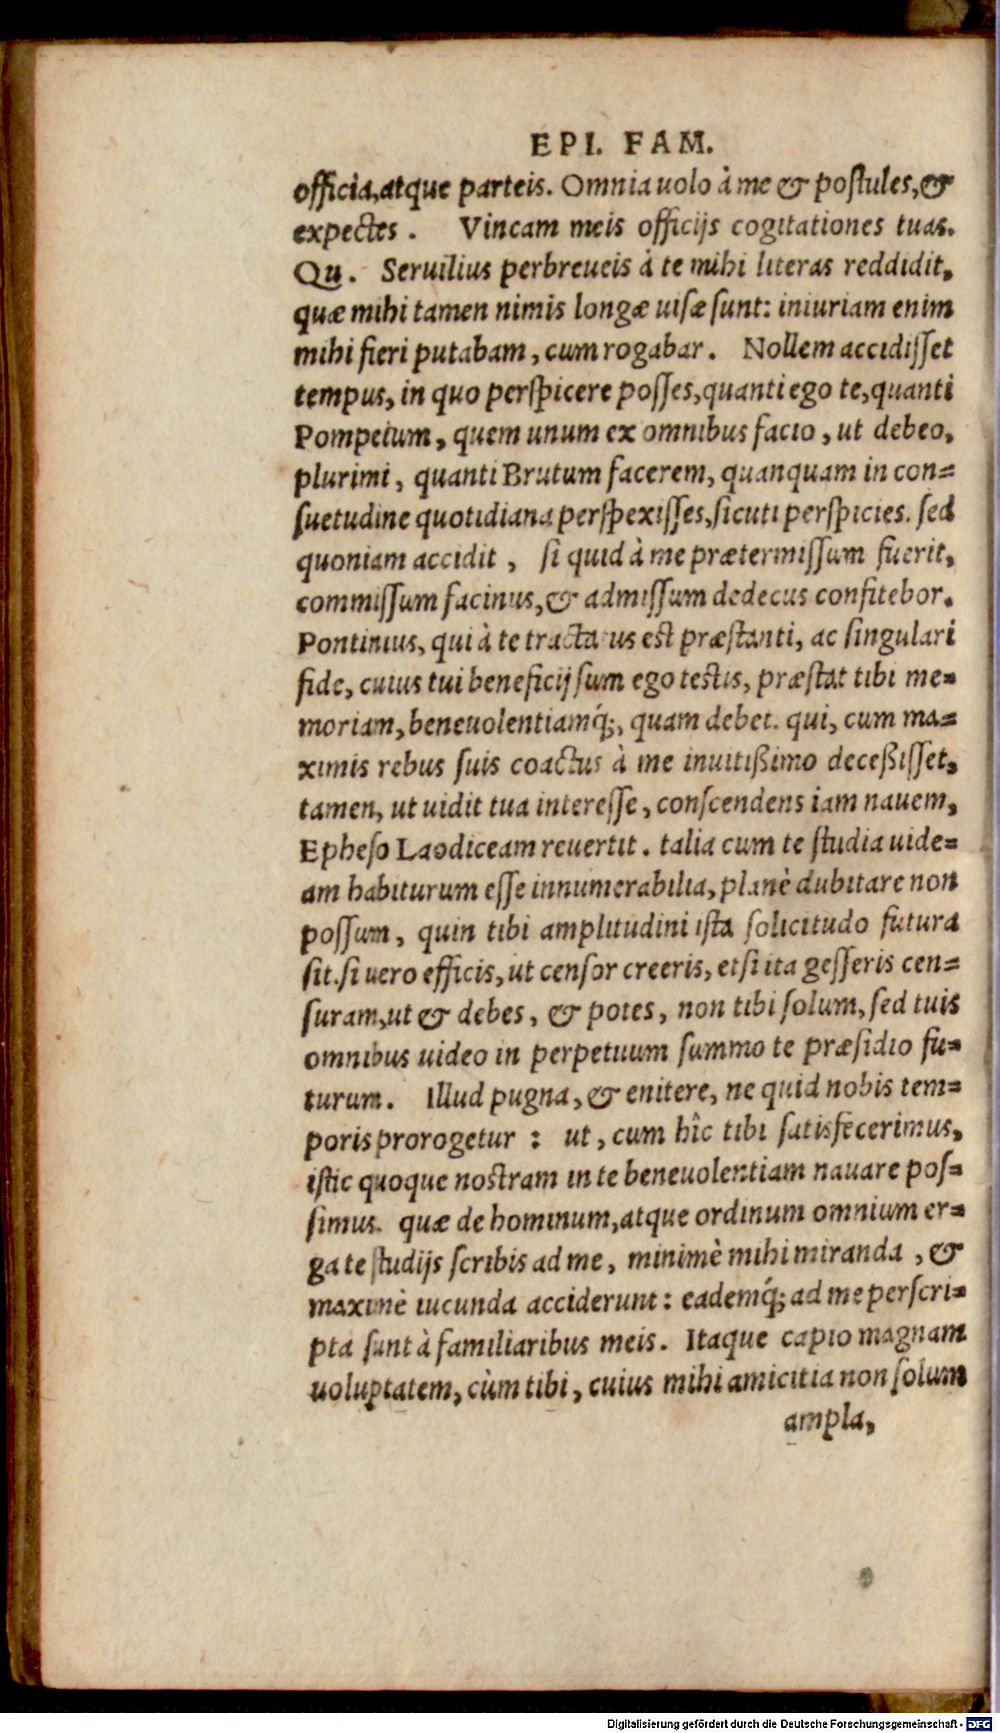 EPI. FAM.
officia, atque parteis. Omnia uolo à me & postules, &
expectes. Vincam meis officijs cogitationes tuas.
Qu. Seruilius perbreueis à te mihi literas reddidit,
quæ mihi tamen nimis longæ uisæ sunt: iniuriam enim
mihi fieri putabam, cum rogabar. Nollem accidisset
tempus, in quo perspicere posses, quanti ego te, quanti
Pompeium, quem unum ex omnibus facio, ut debeo,
plurimi, quanti Brutum facerem, quanquam in con=
suetudine quotidiana perspexisses, sicuti perspicies. sed
quoniam accidit, si quid à me prætermissum fuerit,
commissum facinus, & admissum dedecus confitebor.
Pontinius, qui à te tractatus est præstanti, ac singulari
fide, cuius tui beneficij sum ego testis, præstat tibi me=
moriam, beneuolentiamq́;, quam debet. qui, cum ma=
ximis rebus suis coactus à me inuitißimo deceßisset,
tamen, ut uidit tua interesse, conscendens iam nauem,
Epheso Laodiceam reuertit. talia cum te studia uide=
am habiturum esse innumerabilia, planè dubitare non
possum, quin tibi amplitudini ista solicitudo futura
sit. si uero efficis, ut censor creeris, et si ita gesseris cen=
suram, ut & debes, & potes, non tibi solum, sed tuis
omnibus uideo in perpetuum summo te præsidio fu=
turum. Illud pugna, & enitere, ne quid nobis tem=
poris prorogetur: ut, cum hîc tibi satisfecerimus,
istic quoque nostram in te beneuolentiam nauare pos=
simus. quæ de hominum, atque ordinum omnium er=
ga te studijs scribis ad me, minimè mihi miranda, &
maximè iucunda acciderunt: eademq́; ad me perscri=
pta sunt à familiaribus meis. Itaque capio magnam
uoluptatem, cùm tibi, cuius mihi amicitia non solum
ampla,
Digitalisierung gefördert durch die Deutsche Forschungsgemeinschaft - DFG